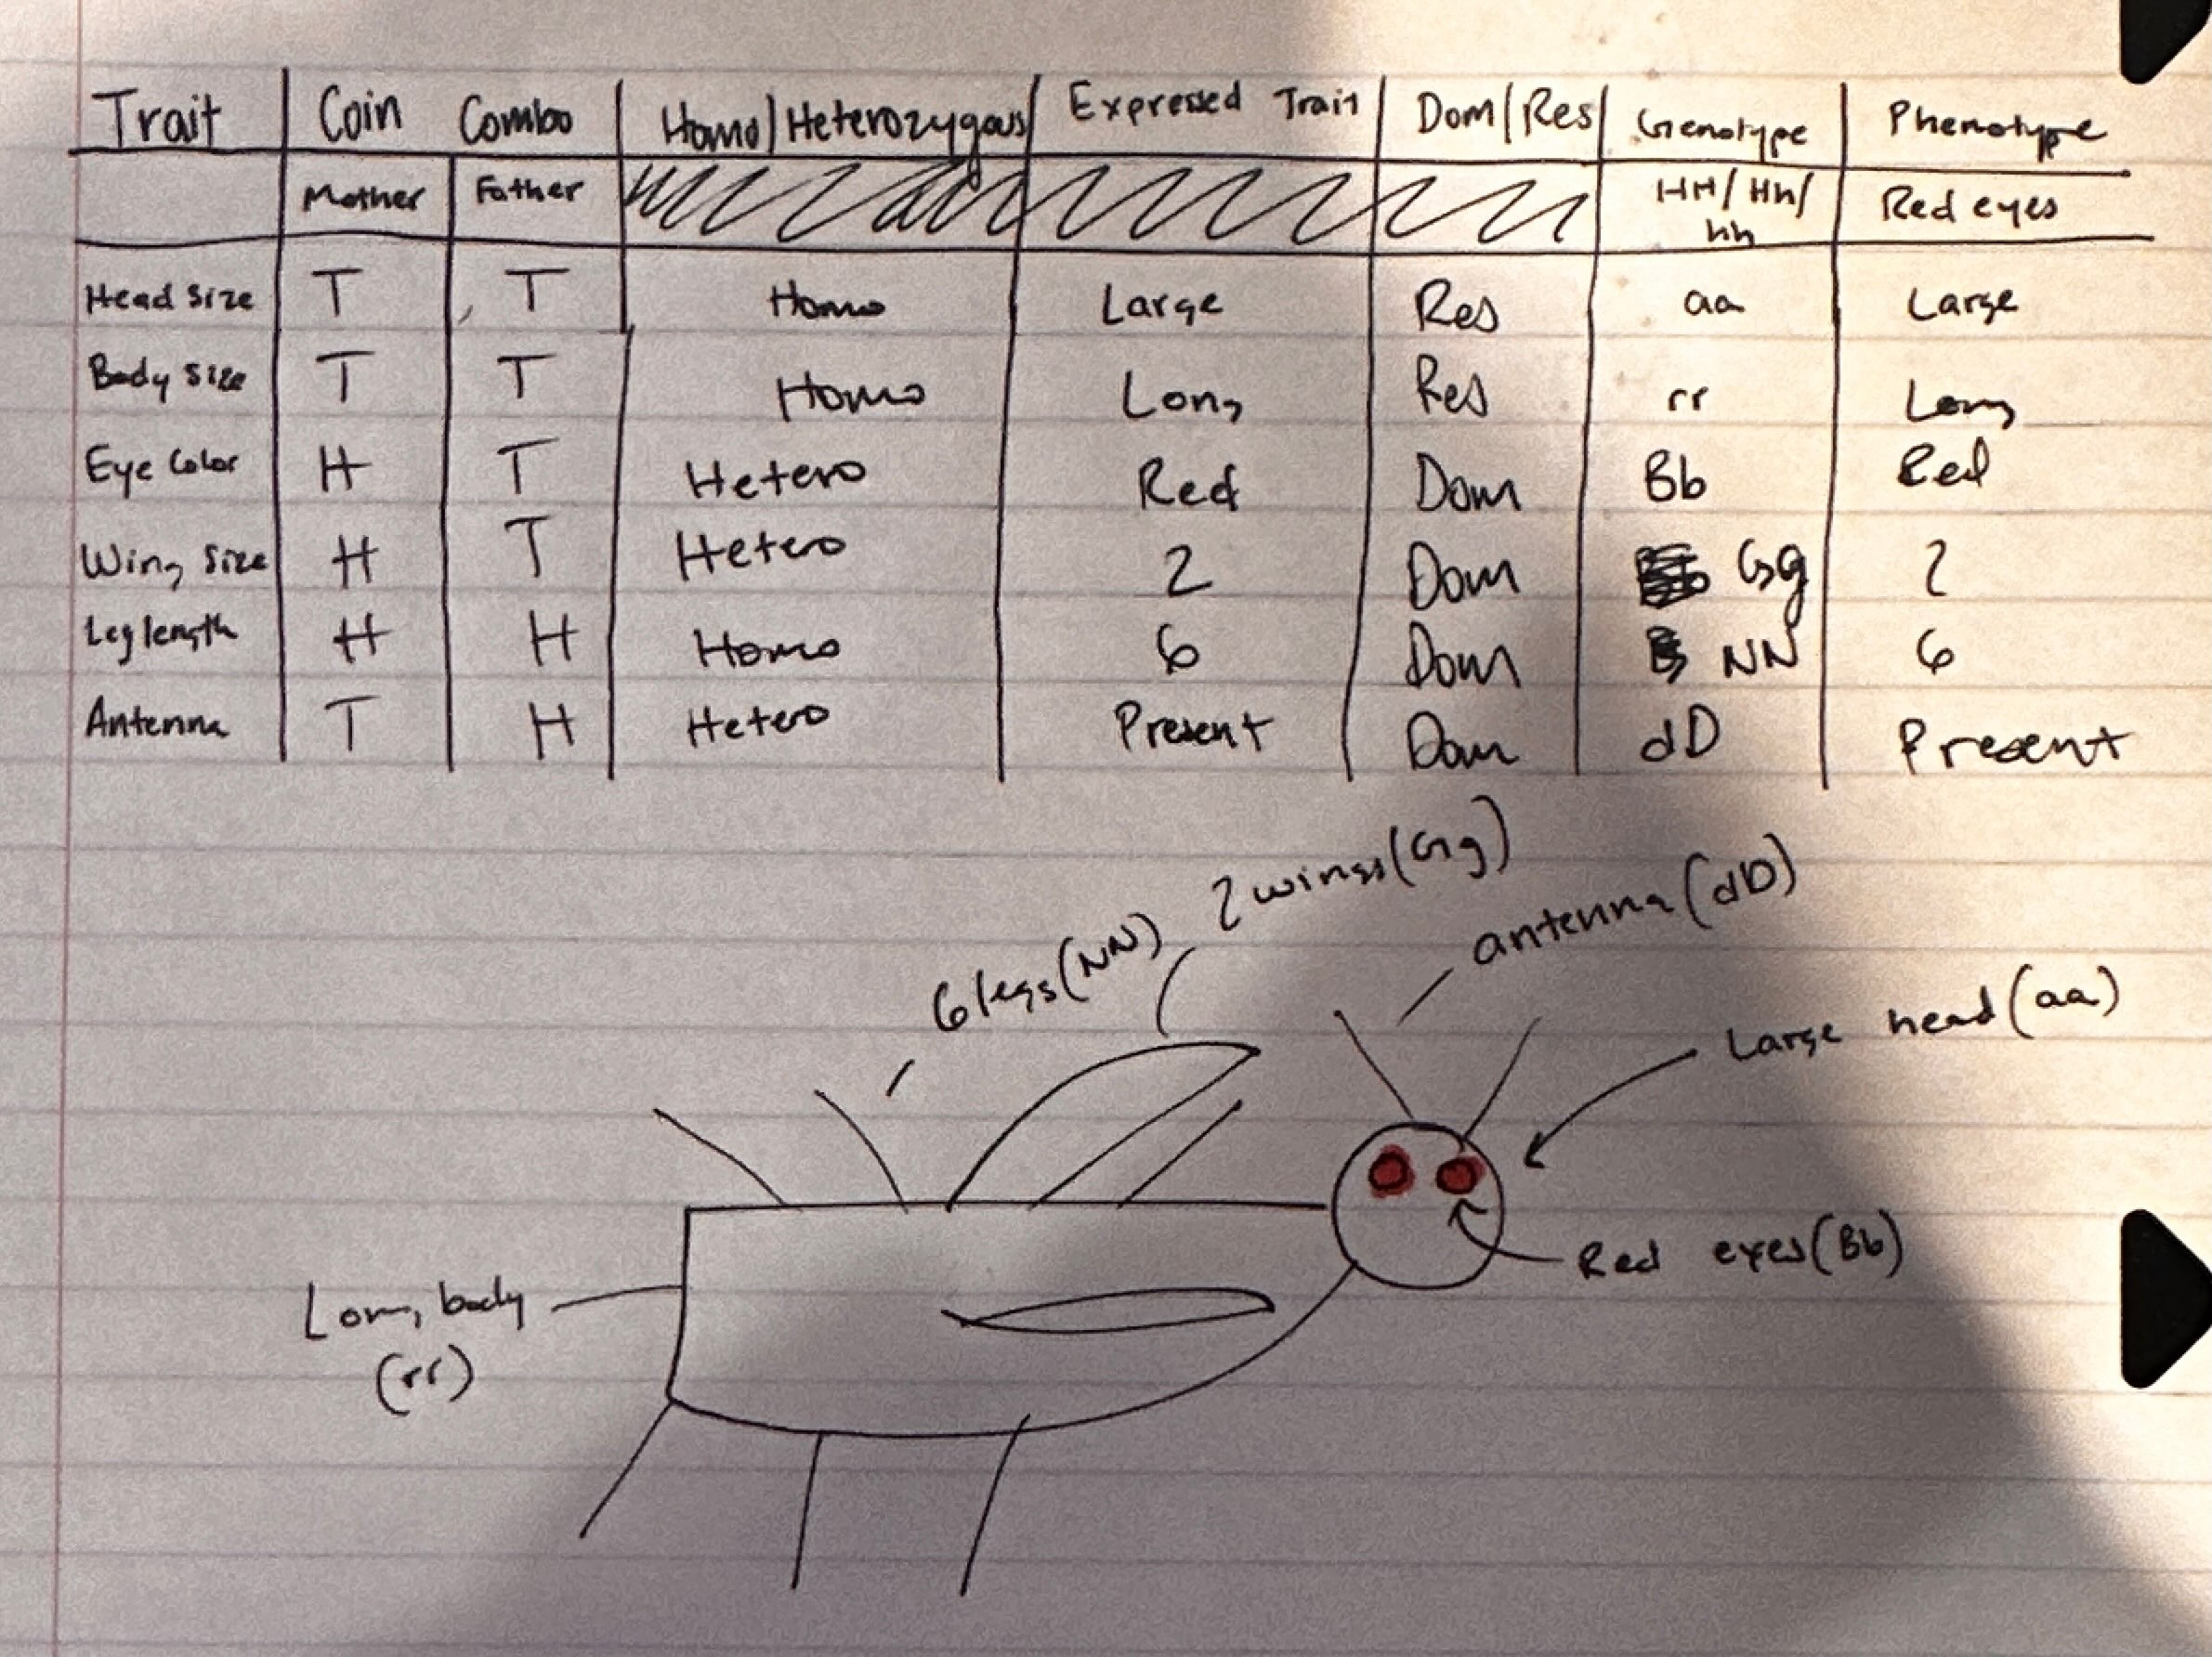 Trait Coin Combo Homo/Heterozygous Expressed Trait Dom/Res Genotype Phenotype
Mother Father HH/Hh/ Red eyes
hh
Head Size T T Homo Large Res aa Large
Body Size T T Homo Long Res rr Long
Eye Color H T Hetero Red Dom Bb Red
Wing Size H T Hetero 2 Dom Gg 2
Leg length H H Homo 6 Dom NN 6
Antenna T H Hetero Present Dom dD Present
2 wings (Gg)
antenna (dD)
6 legs (NN)
Large head (aa)
Red eyes (Bb)
Long body
(rr)